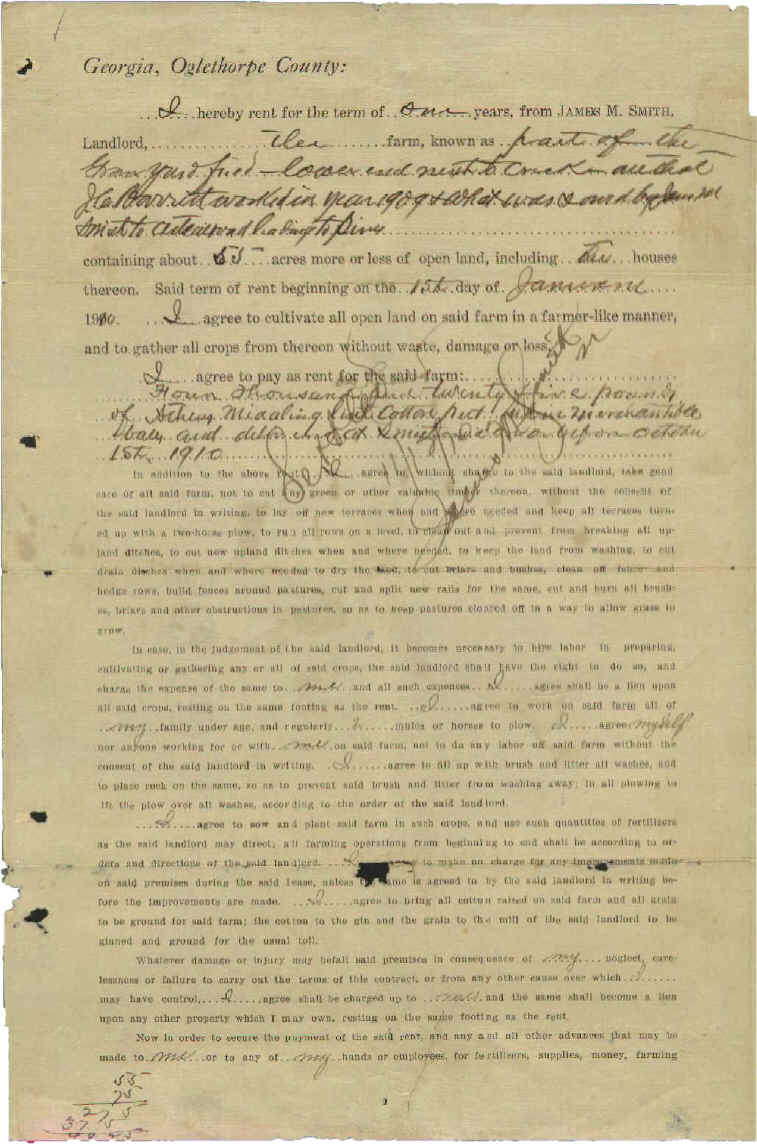 Georgia, Oglethorpe County:
I hereby rent for the term of one years, from JAMES M. SMITH,
Landlord, the farm, known as parts of the
Grave yard field - lower end next to Creek
worked in year 1909 & what was
to
containing about 55 acres more or less of open land, including the houses
thereon. Said term of rent beginning on the 1st day of January
1910. I agree to cultivate all open land on said farm in a farmer-like manner,
and to gather all crops from thereon without waste, damage or loss.
I agree to pay as rent for the said farm:
Four Thousand and twenty five pounds
of Athens Middling Lint Cotton put in merchantable
bales and delivered at on October
1st 1910
In addition to the above rent, I agree to, without charge to the said landlord, take good
care of all said farm, not to cut any green or other valuable timber thereon, without the consent of
the said landlord in writing, to lay off new terraces when and where needed and keep all terraces turn-
ed up with a two-horse plow, to run all rows on a level, to clean out and prevent from breaking all up-
land ditches, to cut new upland ditches when and where needed, to keep the land from washing, to cut
drain ditches when and where needed to dry the land, to cut briars and bushes, clean off fence and
hedge rows, build fences around pastures, cut and split new rails for the same, cut and burn all brush-
es, briars and other obstructions in pastures, so as to keep pastures cleared off in a way to allow grass to
grow.
In case, in the judgement of the said landlord, it becomes necessary to hire labor in preparing,
cultivating or gathering any or all of said crops, the said landlord shall have the right to do so, and
charge the expense of the same to me and all such expences I agree shall be a lien upon
all said crops, resting on the same footing as the rent. I agree to work on said farm all of
my family under age, and regularly 2 mules or horses to plow. I agree myself
nor anyone working for or with me on said farm, not to do any labor off said farm without the
consent of the said landlord in writing. I agree to fill up with brush and litter all washes, and
to place rock on the same, so as to prevent said brush and litter from washing away; in all plowing to
lift the plow over all washes, according to the order of the said landlord.
I agree to sow and plant said farm in such crops, and use such quantities of fertilizers
as the said landlord may direct; all farming operations from beginning to end shall be according to or-
ders and directions of the said landlord. I agree to make no charge for any improvements made
on said premises during the said lease, unless the same is agreed to by the said landlord in writing be-
fore the improvements are made. I agree to bring all cotton raised on said farm and all grain
to be ground for said farm; the cotton to the gin and the grain to the mill of the said landlord to be
ginned and ground for the usual toll.
Whatever damage or injury may befall said premises in consequence of my neglect, care-
lessness or failure to carry out the terms of this contract, or from any other cause over which I
may have control, I agree shall be charged up to me and the same shall become a lien
upon any other property which I may own, resting on the same footing as the rent.
Now in order to secure the payment of the said rent, and any and all other advances that may be
made to me or to any of my hands or employees, for fertilizers, supplies, money, farming
55
75
275